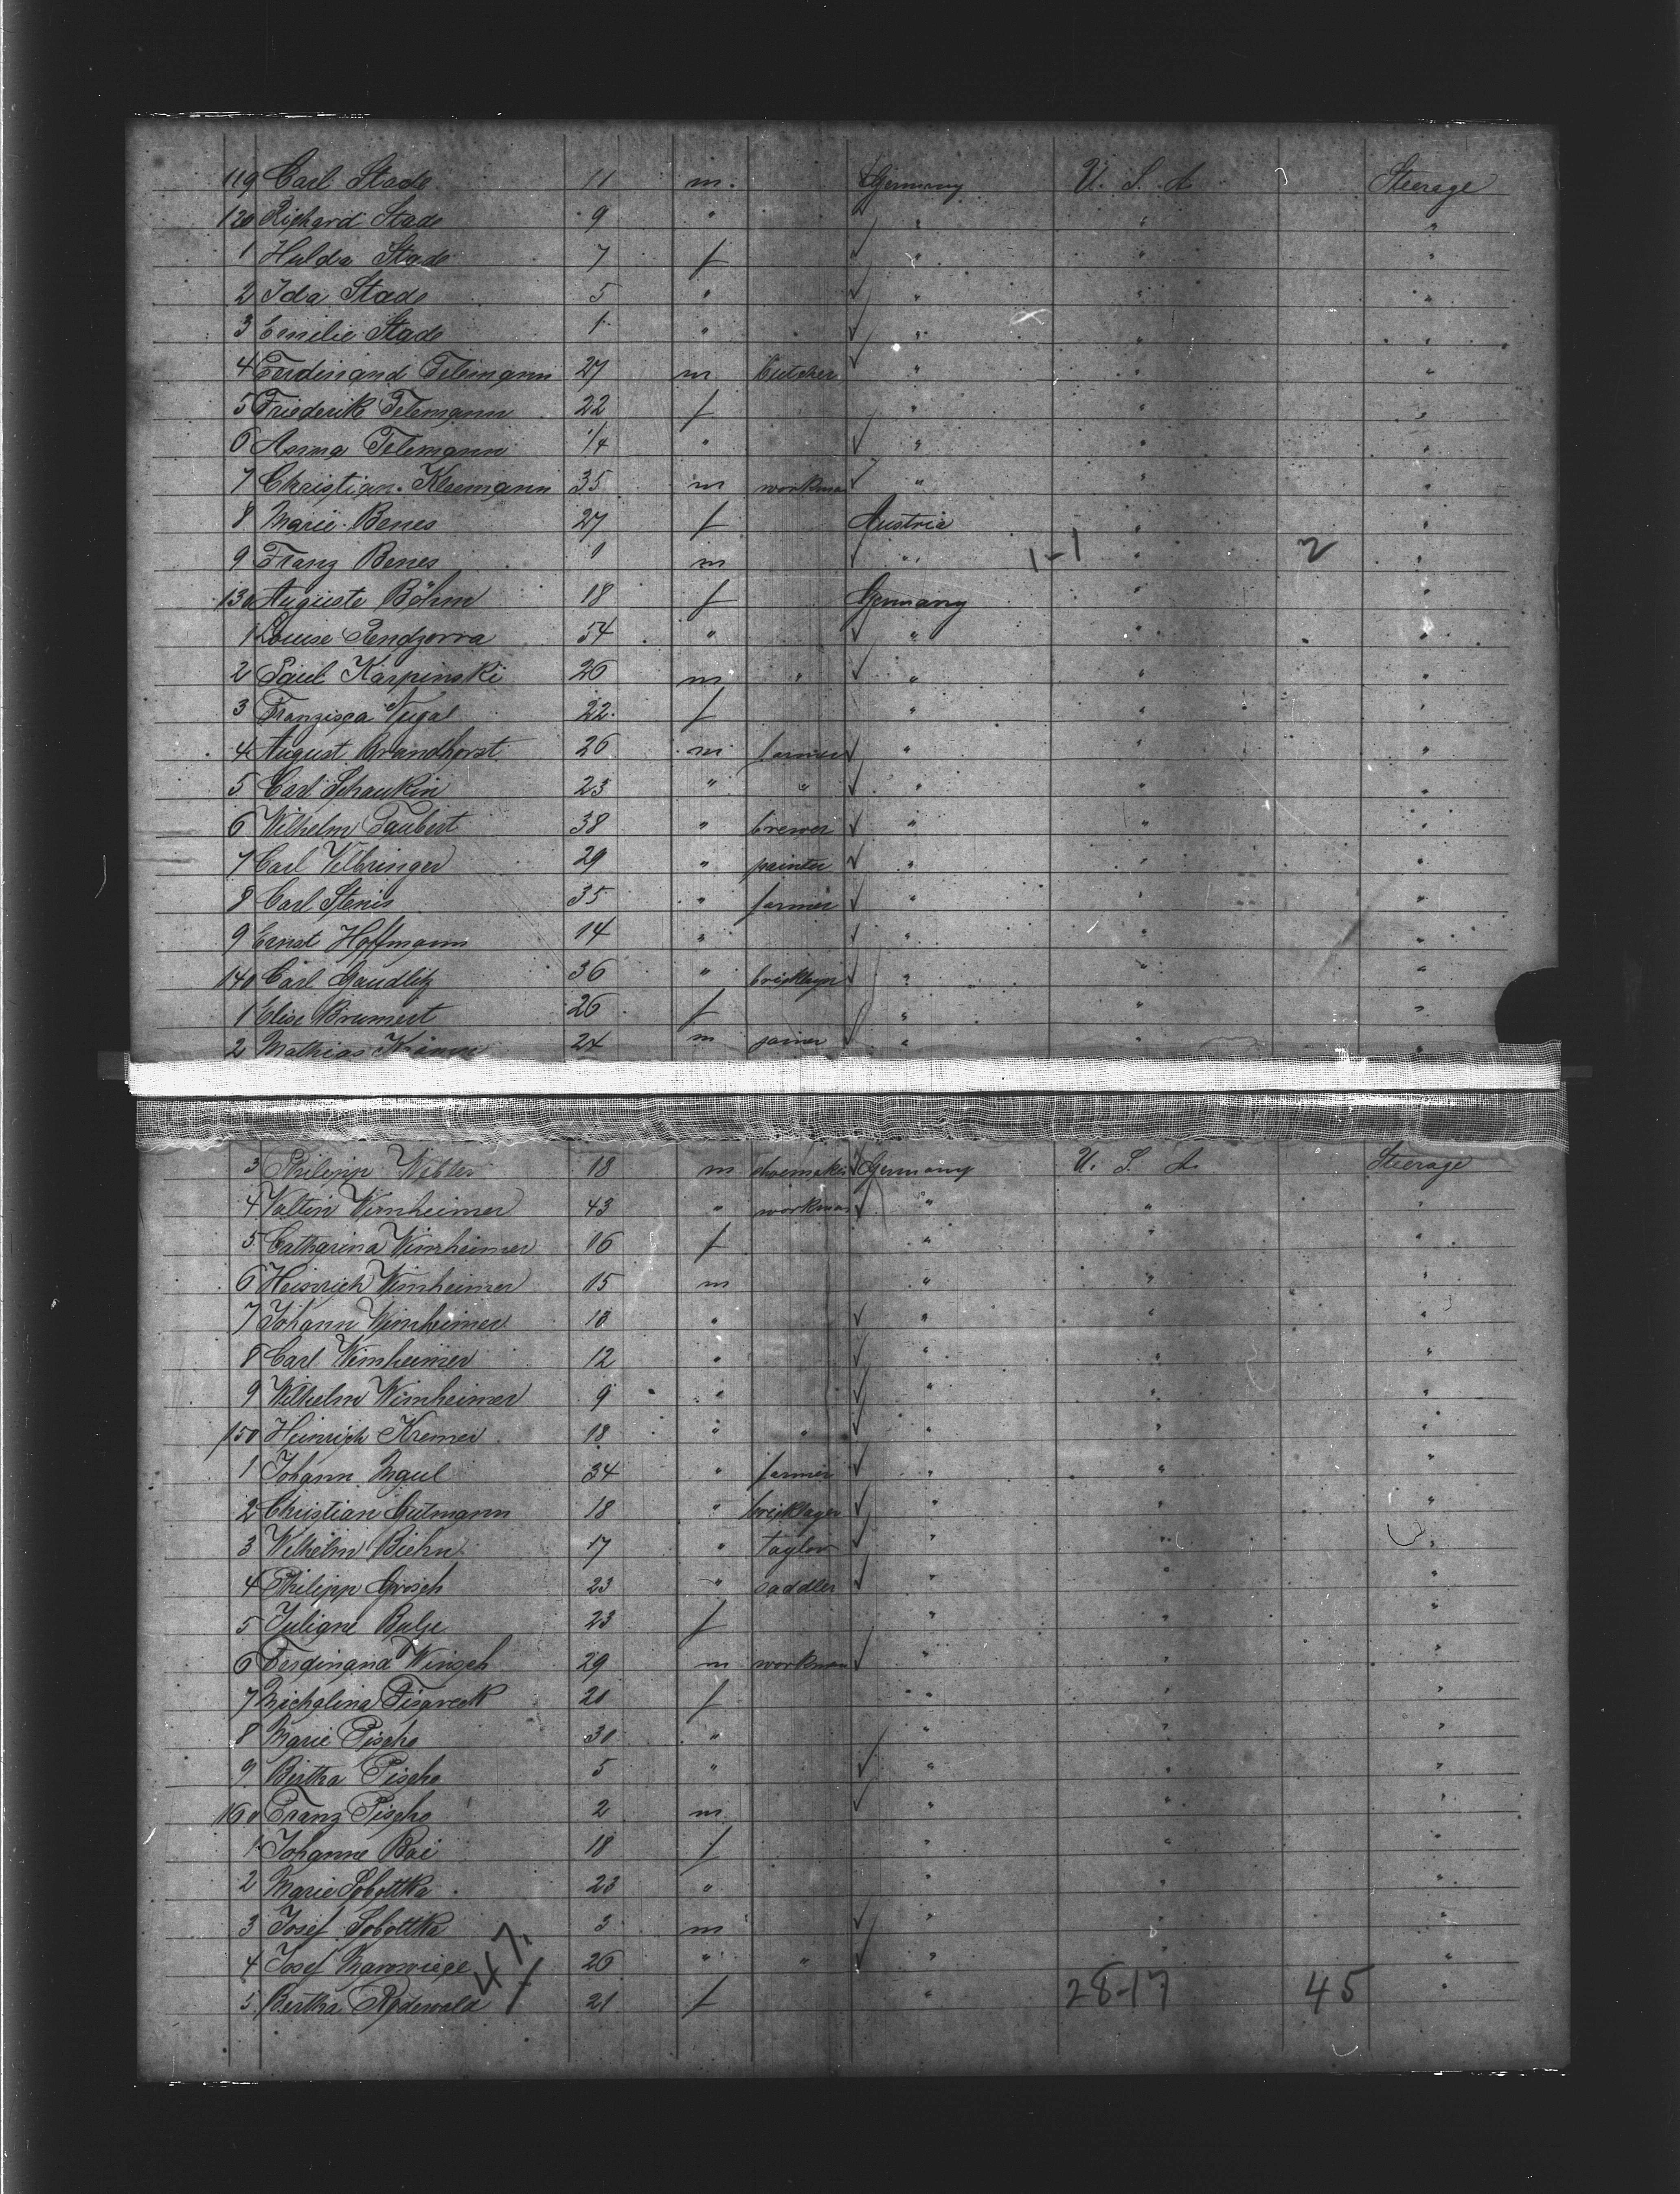 119 Carl Stade 11 m. Germany U. S. A. Steerage
120 Richard Stade 9 " " " "
1 Hulda Stade 7 f " " "
2 Ida Stade 5 " " " "
3 Emilie Stade 1 " " " "
4 Ferdinand Telemann 27 m butcher " " "
5 Friederike Telemann 22 f " " "
6 Anna Telemann 1/4 " " " "
7 Christian Kleemann 35 m workman " " "
8 Marie Benes 27 f Austria " "
9 Franz Benes 1 m " 1-1 " 2 "
130 Auguste Böhm 18 f Germany " "
1 Louise 54 " " " "
2 Paul Karpinski 26 m " " " "
3 Franzisca 22 f " " "
4 August Brandhorst 26 m farmer " " "
5 Carl Schaukin 23 " " " " "
6 Wilhelm Taubert 38 " brewer " " "
7 Carl 29 " painter " " "
8 Carl Stenis 35 " farmer " " "
9 Ernst Hoffmann 14 " " " "
140 Carl Gaudlitz 36 " bricklayer " " "
1 Elise Brumert 26 f " " "
2 Mathias 24 m joiner " " "
3 Philipp Webler 18 m shoemaker Germany U. S. A. Steerage
4 Valtin Wimheimer 43 " workman " " "
5 Catharina Wimheimer 16 f " " "
6 Heinrich Wimheimer 15 m " " "
7 Johann Wimheimer " " " "
8 Carl Wimheimer 12 " " " "
9 Wilhelm Wimheimer 9 " " " "
150 Heinrich Kremer 18 " " " " "
1 Johann Maul 34 " farmer " " "
2 Christian Gutmann 18 " bricklayer " " "
3 Wilhelm Biehn 17 " taylor " " "
4 Philipp Grosch 23 " saddler " " "
5 Juliane 23 f " " "
6 Ferdinand Winsch 29 m workman " " "
7 Michalina 21 f " " "
8 Marie Pischo 30 " " " "
9 Bertha Pischo 5 " " " "
160 Franz Pischo 2 m " " "
1 Johanne Bai 18 f " " "
2 Marie Sobottka 23 " " " "
3 Josef Sobottka 3 m " " "
4 Josef 26 " " " " "
5 Bertha Rodewald 21 f " 28-17 45 "